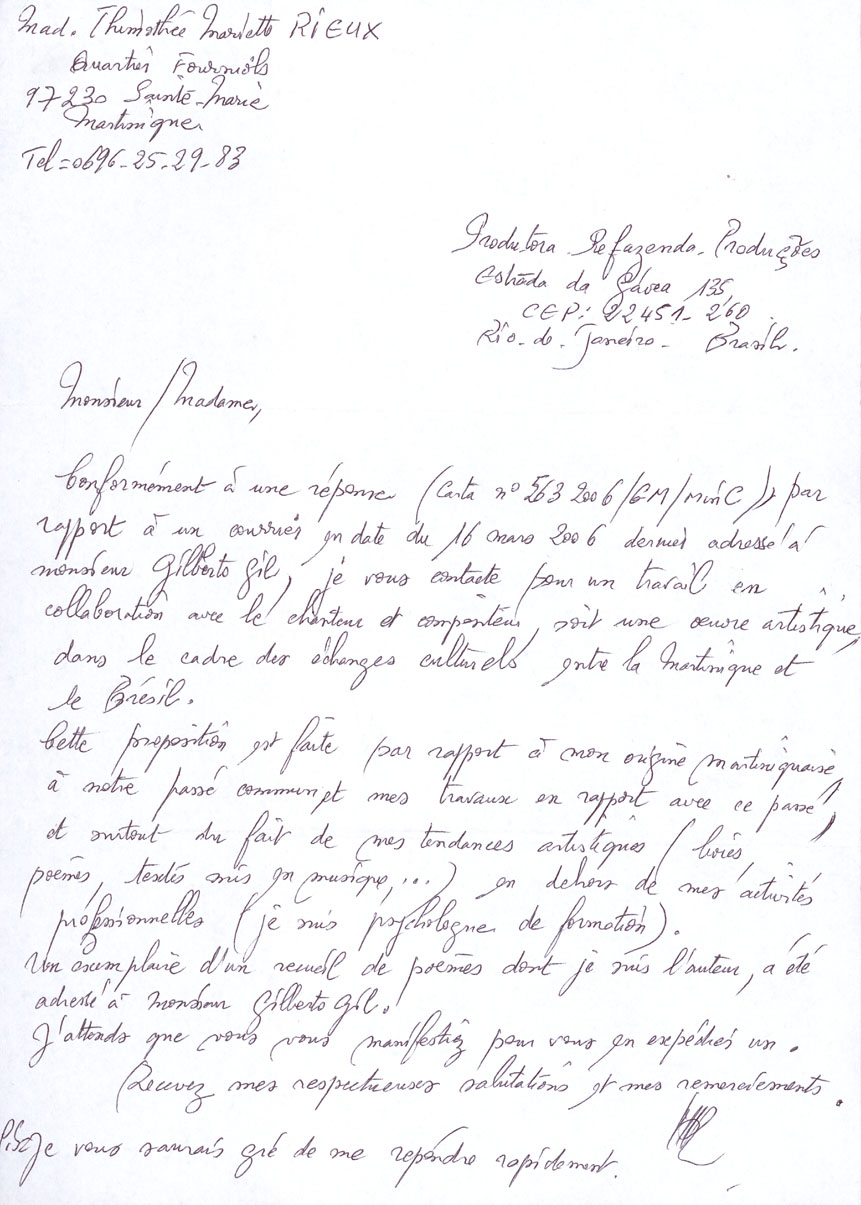 Mad. Thimothée Mariette RIEUX
Quartier Fourniols
97230 Sainte-Marie
Martinique
Tel=0696-25-29-83
Produtora Refazenda Produções
Estrada da Gávea 135
CEP: 22451-260
Rio-de-Janeiro- Brasil.
Monsieur / Madame,
Conformément à une réponse (Carta nº 563 2006/GM/MinC)) par
rapport à un courrier en date du 16 mars 2006 dernier adressé à
monsieur Gilberto Gil, je vous contacte pour un travail en
collaboration avec le chanteur et compositeur, soit une œuvre artistique,
dans le cadre des échanges culturels entre la Martinique et
le Brésil.
Cette proposition est faite par rapport à mon origine martiniquaise,
à notre passé commun et mes travaux en rapport avec ce passé,
et surtout du fait de mes tendances artistiques (livres,
poèmes, textes mis en musique,...) en dehors de mes activités
professionnelles (je suis psychologue de formation).
Un exemplaire d'un recueil de poèmes dont je suis l'auteur, a été
adressé à Monsieur Gilberto Gil.
J'attends que vous vous manifestiez pour vous en expédier un.
Recevez mes respectueuses salutations et mes remerciements.
P.S: Je vous saurais gré de me repondre rapidement.